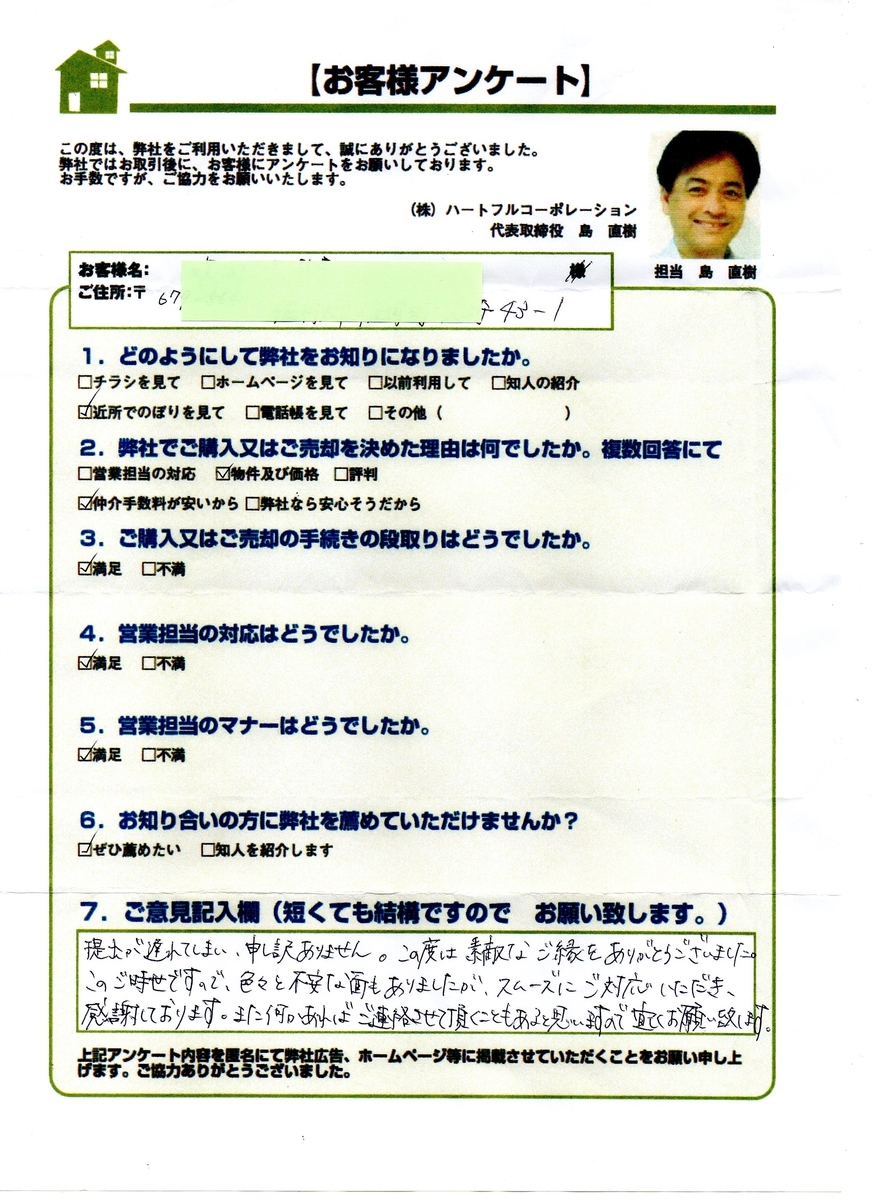 【お客様アンケート】
この度は、弊社をご利用いただきまして、誠にありがとうございました。
弊社ではお取引後に、お客様にアンケートをお願いしております。
お手数ですが、ご協力をお願いいたします。
(株) ハートフルコーポレーション
代表取締役 島 直樹
担当 島 直樹
お客様名: 様
ご住所:〒 67 43-1
1. どのようにして弊社をお知りになりましたか。
□チラシを見て □ホームページを見て □以前利用して □知人の紹介
☑近所でのぼりを見て □電話帳を見て □その他 ( )
2. 弊社でご購入又はご売却を決めた理由は何でしたか。複数回答にて
□営業担当の対応 ☑物件及び価格 □評判
☑仲介手数料が安いから □弊社なら安心そうだから
3. ご購入又はご売却の手続きの段取りはどうでしたか。
☑満足 □不満
4. 営業担当の対応はどうでしたか。
☑満足 □不満
5. 営業担当のマナーはどうでしたか。
☑満足 □不満
6. お知り合いの方に弊社を薦めていただけませんか?
☑ぜひ薦めたい □知人を紹介します
7. ご意見記入欄 (短くても結構ですので お願い致します。)
提出が遅れてしまい、申し訳ありません。この度は素敵なご縁をありがとうございました。
このご時世ですので、色々と不安な面もありましたが、スムーズにご対応いただき、
感謝しております。また何かあればご連絡させて頂くこともあると思いますので宜しくお願い致します。
上記アンケート内容を匿名にて弊社広告、ホームページ等に掲載させていただくことをお願い申し上
げます。ご協力ありがとうございました。